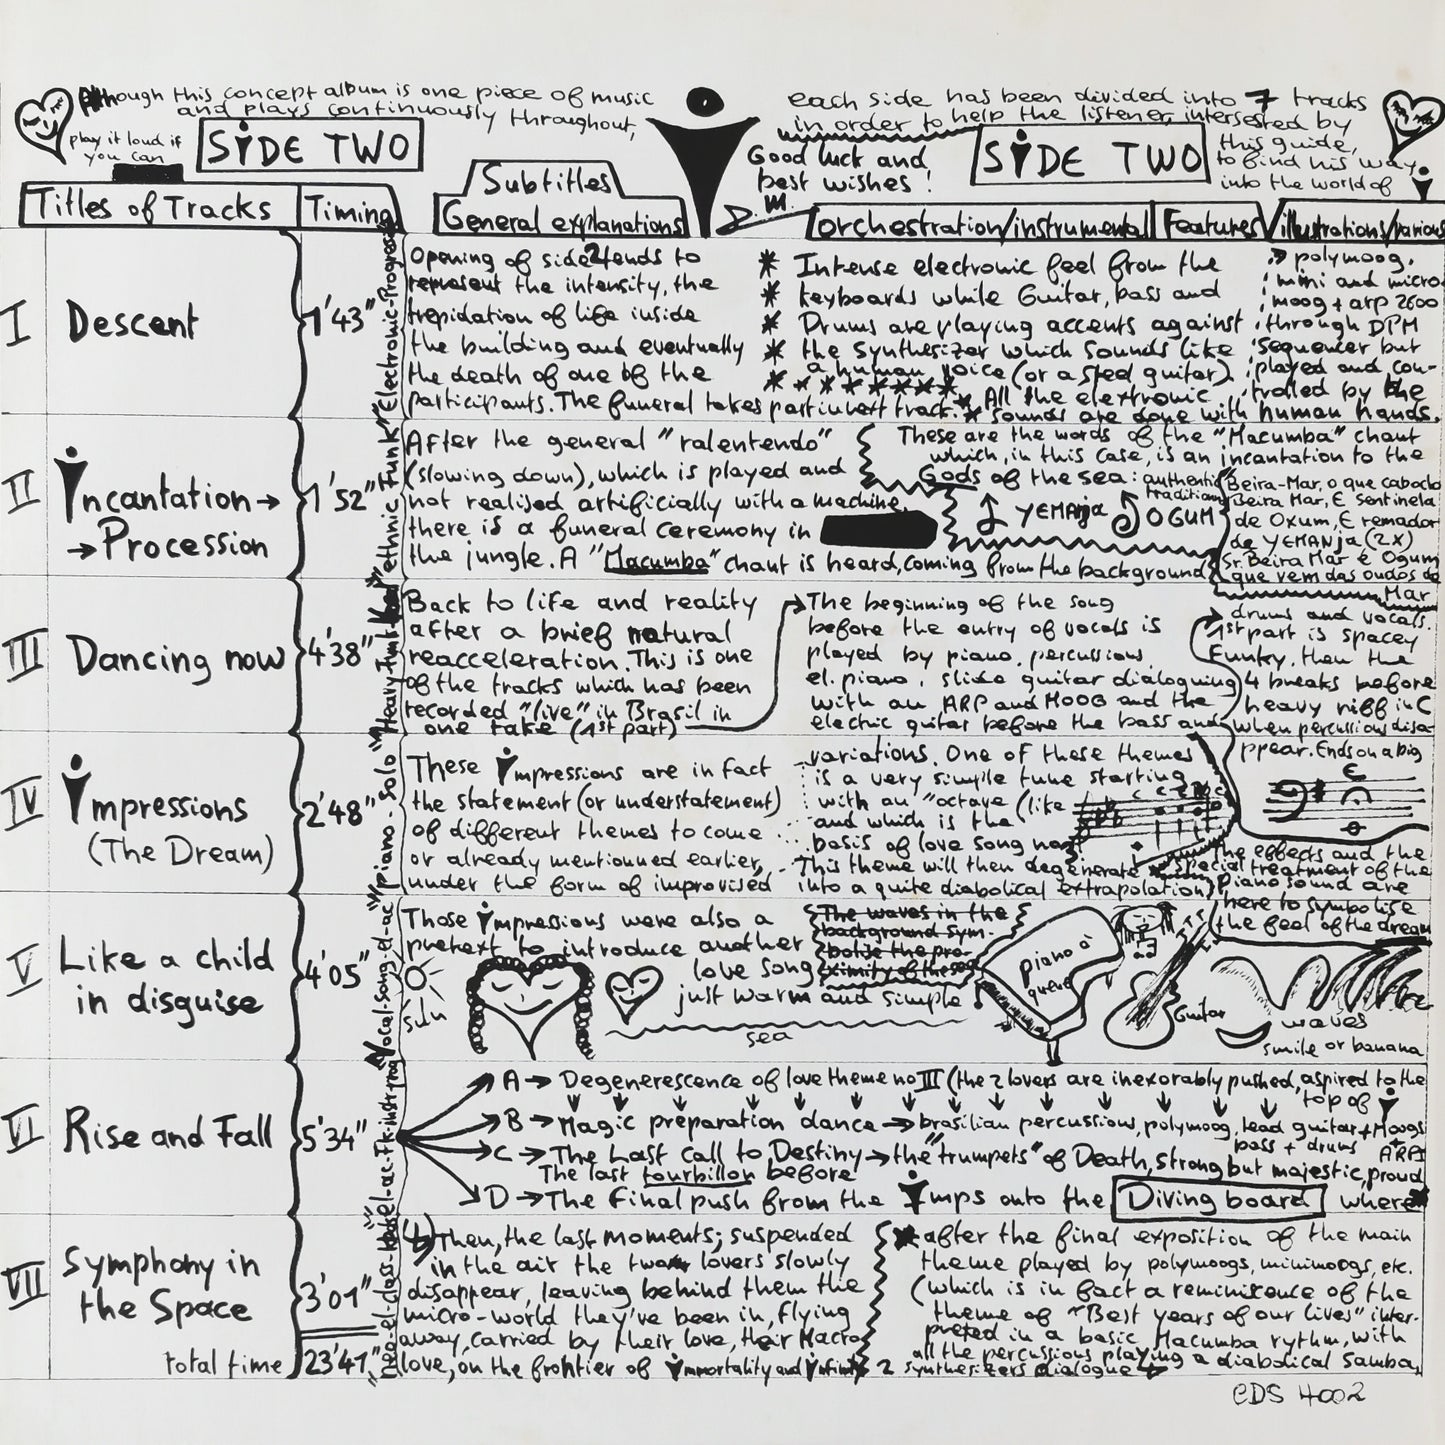 Although this concept album is one piece of music
and plays continuously throughout,
each side has been divided into 7 tracks
in order to help the listener, interested by
this guide,
to find his way
into the world of
play it loud if
you can
SiDE TWO
Good luck and
best wishes!
M.
SiDE TWO
Titles of Tracks
Timing
Subtitles
General explanations
orchestration/instrumental
Features
illustrations/various
I
Descent
1'43"
Opening of side 2 tends to
represent the intensity, the
trepidation of life inside
the building and eventually
the death of one of the
participants. The funeral takes part in next track.
* Intense electronic feel from the
* keyboards while Guitar, bass and
* Drums are playing accents against
* the synthesizer which sounds like
a human voice (or a steel guitar).
All the electronic
sounds are done with human hands.
polymoog,
mini and micro
moog + arp 2600
through DPM
sequencer but
played and con-
trolled by the
II
incantation →
→ Procession
1'52"
"ethnic Funk"
After the general "ralentendo"
(slowing down), which is played and
not realised artificially with a machine,
there is a funeral ceremony in
the jungle. A "Macumba" chant is heard, coming from the background
These are the words of the "Macumba" chant
which, in this case, is an incantation to the
Gods of the sea: authentic
traditional
YEMANja OGUM
Beira-Mar, o que cabocho
Beira Mar, E sentinela
de Oxum, E remador
de YEMANja (2X)
Sr. Beira Mar é Ogum
que vem das oudos de
Mar
III
Dancing now
4'38"
Back to life and reality
after a brief natural
reacceleration. This is one
of the tracks which has been
recorded "live" in Brasil in
one take (1st part)
The beginning of the song
before the entry of vocals is
played by piano, percussions,
el. piano, slide guitar dialoguing
with an ARP and MOOG and the
electric guitar before the bass and
drums and vocals.
1st part is spacey
Funky, then the
4 breaks before
heavy riff in C
when percussions disa-
ppear. Ends on a big
IV
impressions
(The Dream)
2'48"
"piano-solo"
These impressions are in fact
the statement (or understatement)
of different themes to come
or already mentionned earlier,
under the form of improvised
variations. One of these themes
is a very simple tune starting
with an "octave (like
and which is the
basis of love song no
This theme will then degenerate
into a quite diabolical extrapolation)
the effects and the
special treatment of the
piano sound are
here to symbolise
the feel of the dream
V
Like a child
in disguise
4'05"
Those impressions were also a
pretext to introduce another
love song
just warm and simple
The waves in the
background sym-
bolize the pro-
ximity of the sea
sun
sea
piano à
queue
Guitar
waves
smile or banana
VI
Rise and Fall
5'34"
A → Degenerescence of love theme no III (the 2 lovers are inexorably pushed, aspired to the
top of
B → Magic preparation dance → brasilian percussions, polymoog, lead guitar + Moogs
bass + drums + ARPS
C → The Last Call to Destiny → the "trumpets" of Death, strong but majestic, proud
The last tourbillon before
D → The final push from the imps onto the Diving board where
VII
Symphony in
the Space
3'01"
Then, the last moments; suspended
in the air the two lovers slowly
disappear, leaving behind them the
micro-world they've been in, flying
away, carried by their love, their Macro
love, on the frontier of immortality and infinity
* after the final exposition of the main
theme played by polymoogs, minimoogs, etc.
(which is in fact a reminiscence of the
theme of "Best years of our lives" inter-
preted in a basic Macumba rythm, with
all the percussions playing a diabolical samba,
2 synthesizers dialogue
total time
23'41"
CDS 4002